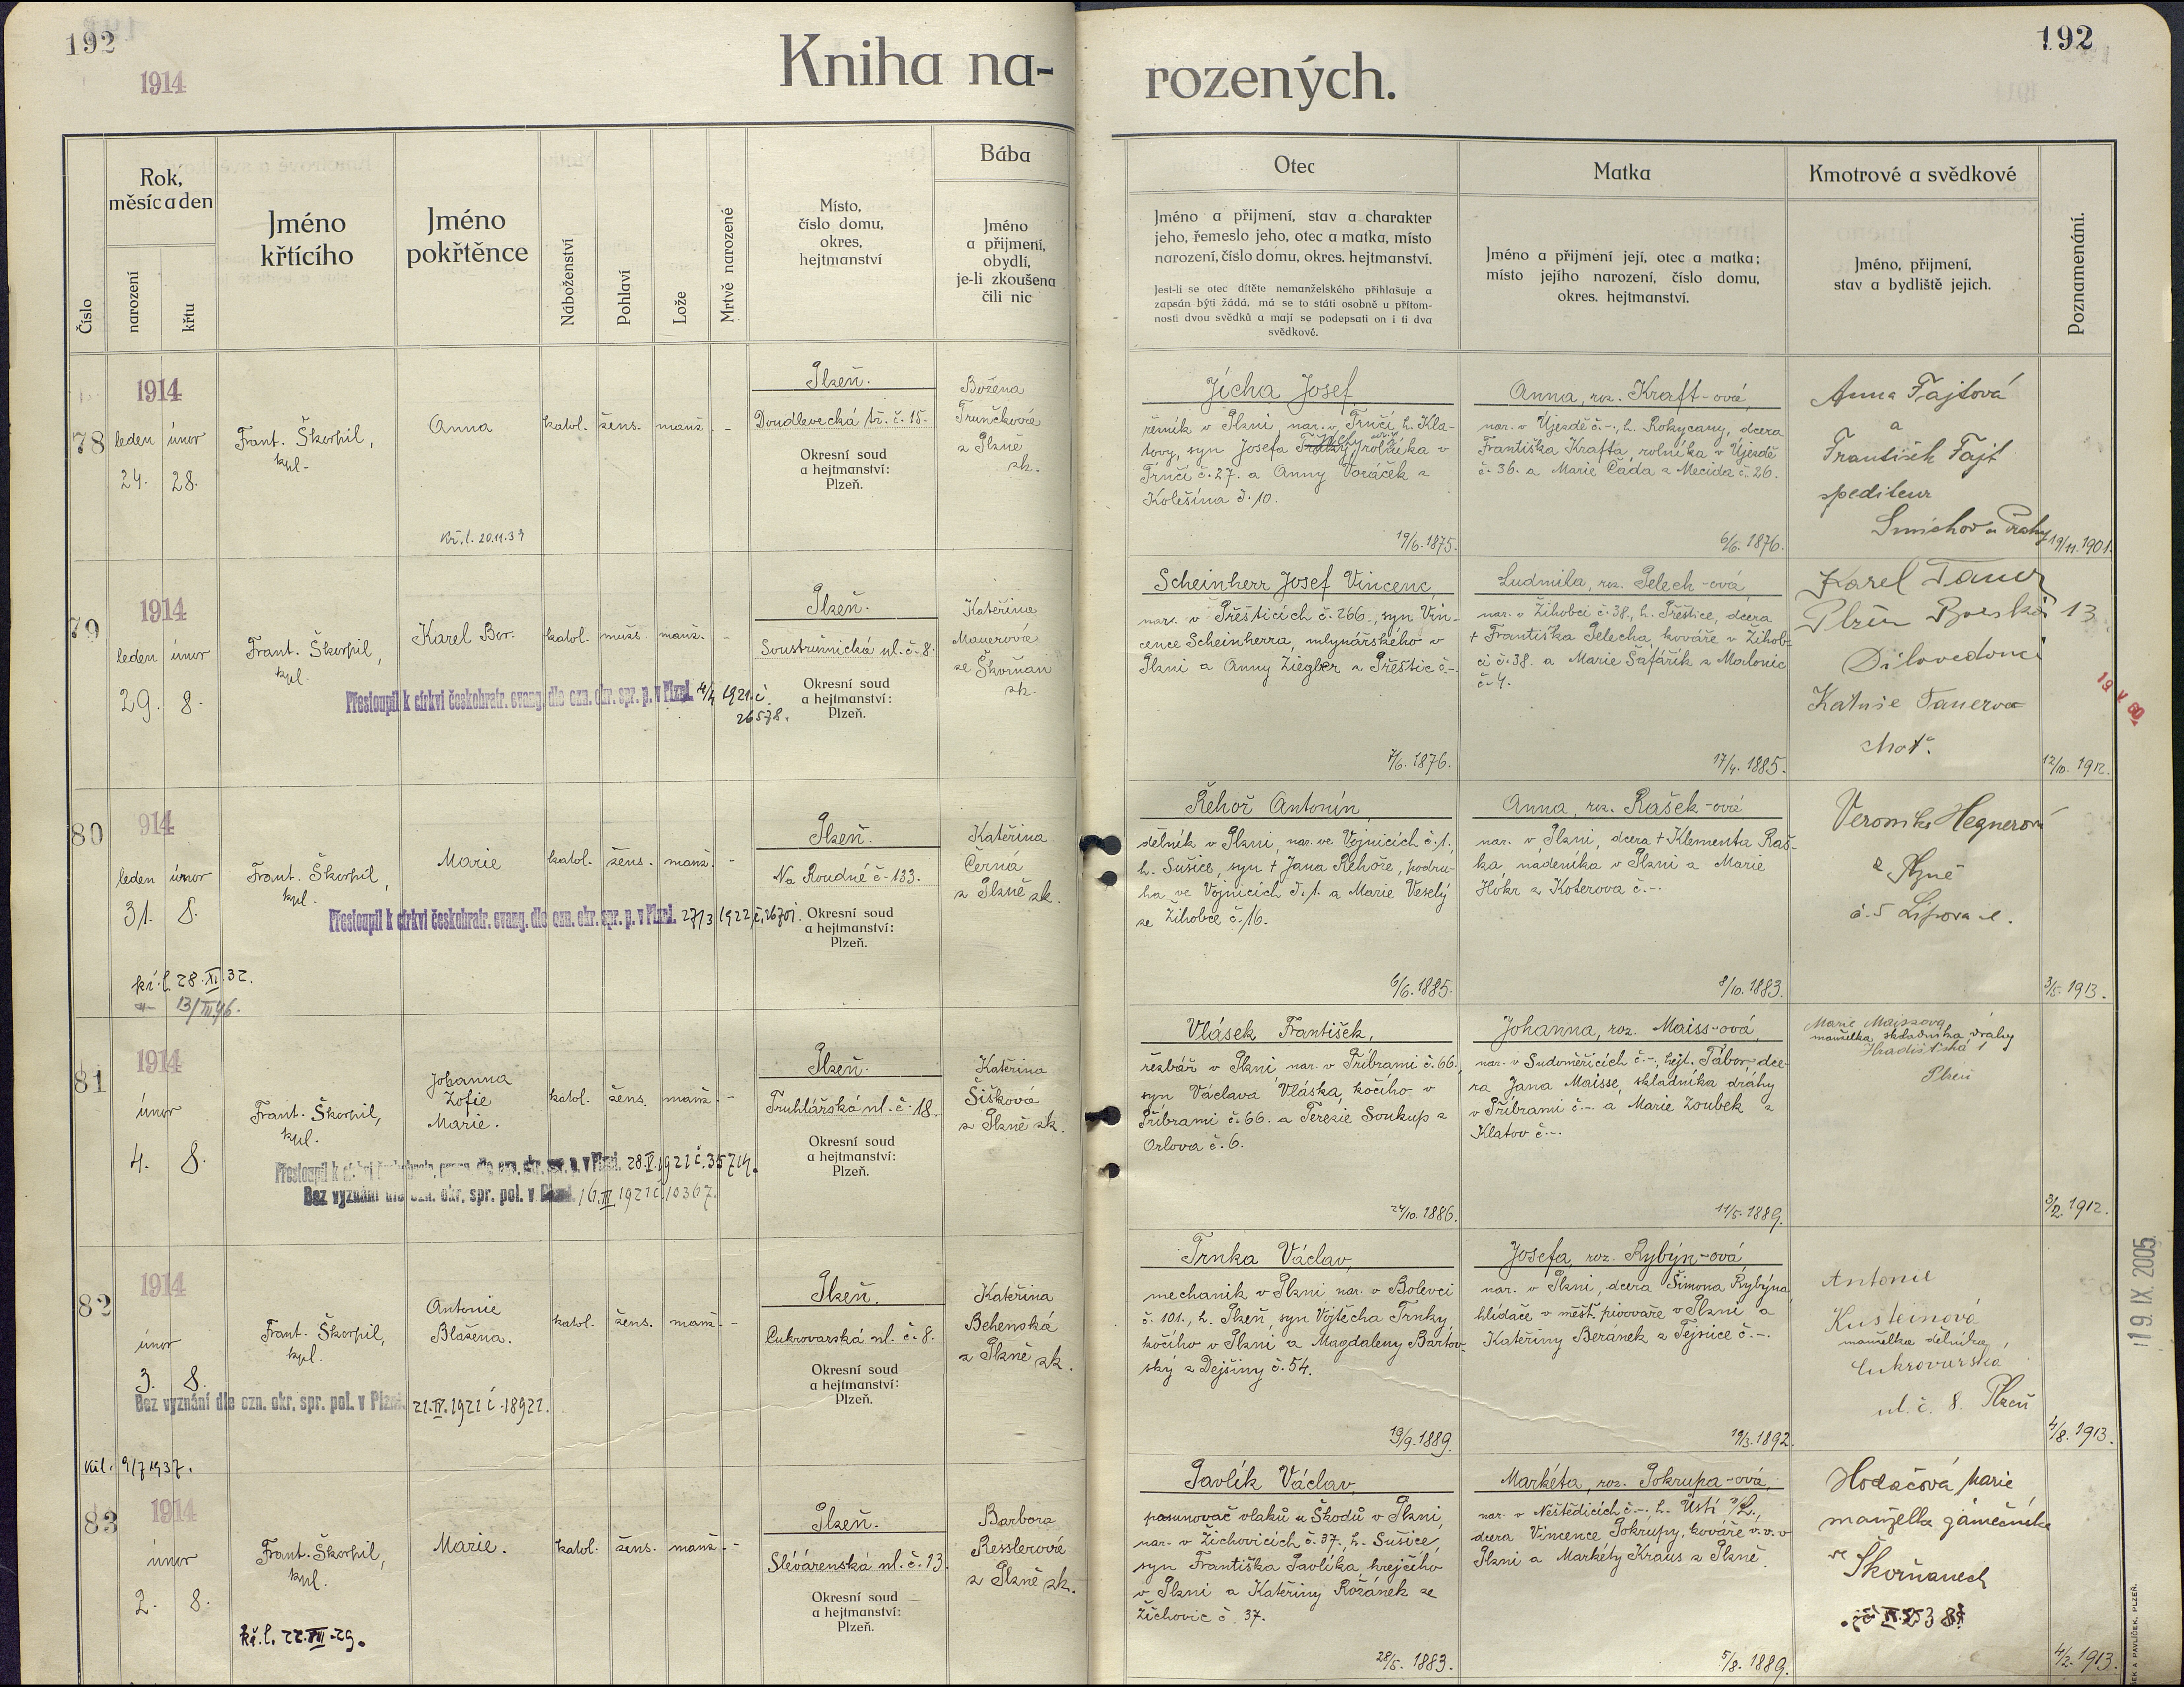 192
1914
Kniha na-
rozených.
192
Číslo
Rok,
měsíc a den
narození
křtu
Jméno
křtícího
Jméno
pokřtěnce
Náboženství
Pohlaví
Lože
Mrtvě narozené
Místo,
číslo domu,
okres,
hejtmanství
Bába
Jméno
a přijmení,
obydlí,
je-li zkoušena
čili nic
Otec
Jméno a přijmení, stav a charakter
jeho, řemeslo jeho, otec a matka, místo
narození, číslo domu, okres. hejtmanství.
Jest-li se otec dítěte nemanželského přihlašuje a
zapsán býti žádá, má se to státi osobně u přítom-
nosti dvou svědků a mají se podepsati on i ti dva
svědkové.
Matka
Jméno a přijmení její, otec a matka;
místo jejího narození, číslo domu,
okres. hejtmanství.
Kmotrové a svědkové
Jméno, přijmení,
stav a bydliště jejich.
Poznamenání.
78
1914
leden únor
24. 28.
Frant. Škorpil,
kpl.
Anna
kř. l. 20.11.39
katol. žens. manž. -
Plzeň.
Doudlevecká tř. č. 15.
Okresní soud
a hejtmanství:
Plzeň.
Božena
Trunčková
z Plzně
zk.
Jícha Josef,
řezník v Plzni, nar. v Trnčí, h. Kla-
tovy, syn Josefa Jíchy, rolníka v
Trnčí č. 27. a Anny Voráček z
Kolešína č. 10.
19/6. 1875.
Anna, roz. Kraft-ová,
nar. v Újezdě č. -., h. Rokycany, dcera
Františka Krafta, rolníka v Újezdě
č. 36. a Marie Čada z Mecida č. 26.
6/6. 1876.
Anna Fajtová
a
František Fajt
spediteur
Smíchov u Prahy
19/11. 1901.
79
1914
leden únor
29. 8.
Frant. Škorpil,
kpl.
Karel Bor.
katol. mužs. manž. -
Přestoupil k církvi českobratr. evang. dle ozn. okr. spr. p. v Plzni. 4/4 1921. č.
26578.
Plzeň.
Soustružnická ul. č. 8.
Okresní soud
a hejtmanství:
Plzeň.
Kateřina
Mauerová
ze Škvrňan
zk.
Scheinherr Josef Vincenc,
nar. v Přešticích č. 266., syn Vin-
cence Scheinherra, mlynářského v
Plzni a Anny Ziegler z Přeštic č. -.
7/6. 1876.
Ludmila, roz. Pelech-ová,
nar. v Žihobci č. 38., h. Přeštice, dcera
† Františka Pelecha, kováře v Žihob-
ci č. 38. a Marie Šafářík z Malonic
č. 4.
17/4. 1885.
Karel Tauer
Plzeň 13
Dílovedoucí
Tauerova
choť.
19 V. 60
12/10. 1912.
80
914
leden únor
31. 8.
kř. l. 28. XI. 32.
13/III 46.
Frant. Škorpil,
kpl.
Marie
katol. žens. manž. -
Přestoupil k církvi českobratr. evang. dle ozn. okr. spr. p. v Plzni. 27/3 1922 č. 26701.
Plzeň.
Na Roudné č. 133.
Okresní soud
a hejtmanství:
Plzeň.
Kateřina
Černá
z Plzně zk.
Řehoř Antonín,
dělník v Plzni, nar. ve Vojnicích č. 1.,
h. Sušice, syn † Jana Řehoře, podru-
ha ve Vojnicích č. 1. a Marie Veselý
ze Žihobce č. 16.
6/6. 1885.
Anna, roz. Rašek-ová
nar. v Plzni, dcera † Klementa Raš-
ka, nadeníka v Plzni a Marie
Hókr z Koterova č. -.
8/10. 1883.
Veronika Hegnerová
z Plzně
č. 5 Lipova ul.
3/5. 1913.
81
1914
únor
4. 8.
Frant. Škorpil,
kpl.
Johanna
Žofie
Marie.
katol. žens. manž. -
Přestoupil k církvi českobratr. evang. dle ozn. okr. spr. p. v Plzni. 28. V. 1921 č. 35714.
Bez vyznání dle ozn. okr. spr. pol. v Plzni. 16. III 1921 č. 10367.
Plzeň.
Truhlářská ul. č. 18.
Okresní soud
a hejtmanství:
Plzeň.
Kateřina
Šišková
z Plzně zk.
Vlásek František,
řezbář v Plzni, nar. v Příbrami č. 66.,
syn Václava Vláska, kočího v
Příbrami č. 66. a Terezie Soukup z
Orlova č. 6.
24/10. 1886.
Johanna, roz. Maiss-ová,
nar. v Sudoměřicích č. -., hejt. Tábor, dce-
ra Jana Maisse, skladníka dráhy
v Příbrami č. -. a Marie Zoubek z
Klatov č. -.
11/5. 1889.
Marie Maissova
manželka skladníka dráhy
Hradišťská 1
Plzeň
3/2. 1912.
82
1914
únor
3. 8.
Bez vyznání dle ozn. okr. spr. pol. v Plzni. 21. IV. 1921 č. 18921.
kř. l. 9/7 1937.
Frant. Škorpil,
kpl.
Antonie
Blažena.
katol. žens. manž. -
Plzeň.
Cukrovarská ul. č. 8.
Okresní soud
a hejtmanství:
Plzeň.
Kateřina
Behenská
z Plzně zk.
Trnka Václav,
mechanik v Plzni, nar. v Bolevci
č. 101., h. Plzeň, syn Vojtěcha Trnky,
kočího v Plzni a Magdaleny Bartov-
ský z Dejšiny č. 54.
19/9. 1889.
Josefa, roz. Rybýn-ová,
nar. v Plzni, dcera Šimona Rybýna,
hlídače v měšť. pivovaře v Plzni a
Kateřiny Beránek z Tejnice č. -.
19/3. 1892.
Antonie
Kusteinová
manželka dělníka
Cukrovarská
ul. č. 8. Plzeň
4/8. 1913.
83
1914
únor
2. 8.
Frant. Škorpil,
kpl.
kř. l. 22. VII. 29.
Marie.
katol. žens. manž. -
Plzeň.
Slévárenská ul. č. 13.
Okresní soud
a hejtmanství:
Plzeň.
Barbora
Resslerová
z Plzně zk.
Pavlík Václav,
posunovač vlaků u Škodů v Plzni,
nar. v Žichovicích č. 37., h. Sušice,
syn Františka Pavlíka, krejčího
v Plzni a Kateřiny Rožánek ze
Žichovic č. 37.
28/5. 1883.
Markéta, roz. Pokrupa-ová,
nar. v Neštědicích č. -., h. Ústí n/L.,
dcera Vincence Pokrupy, kováře v. v. v
Plzni a Markéty Kraus z Plzně.
5/8. 1889.
Hodačová Marie
manželka zámečníka
ve
Škvrňanech
4/2. 1913.
19. IX. 2005
A PAVLÍČEK, PLZEŇ.